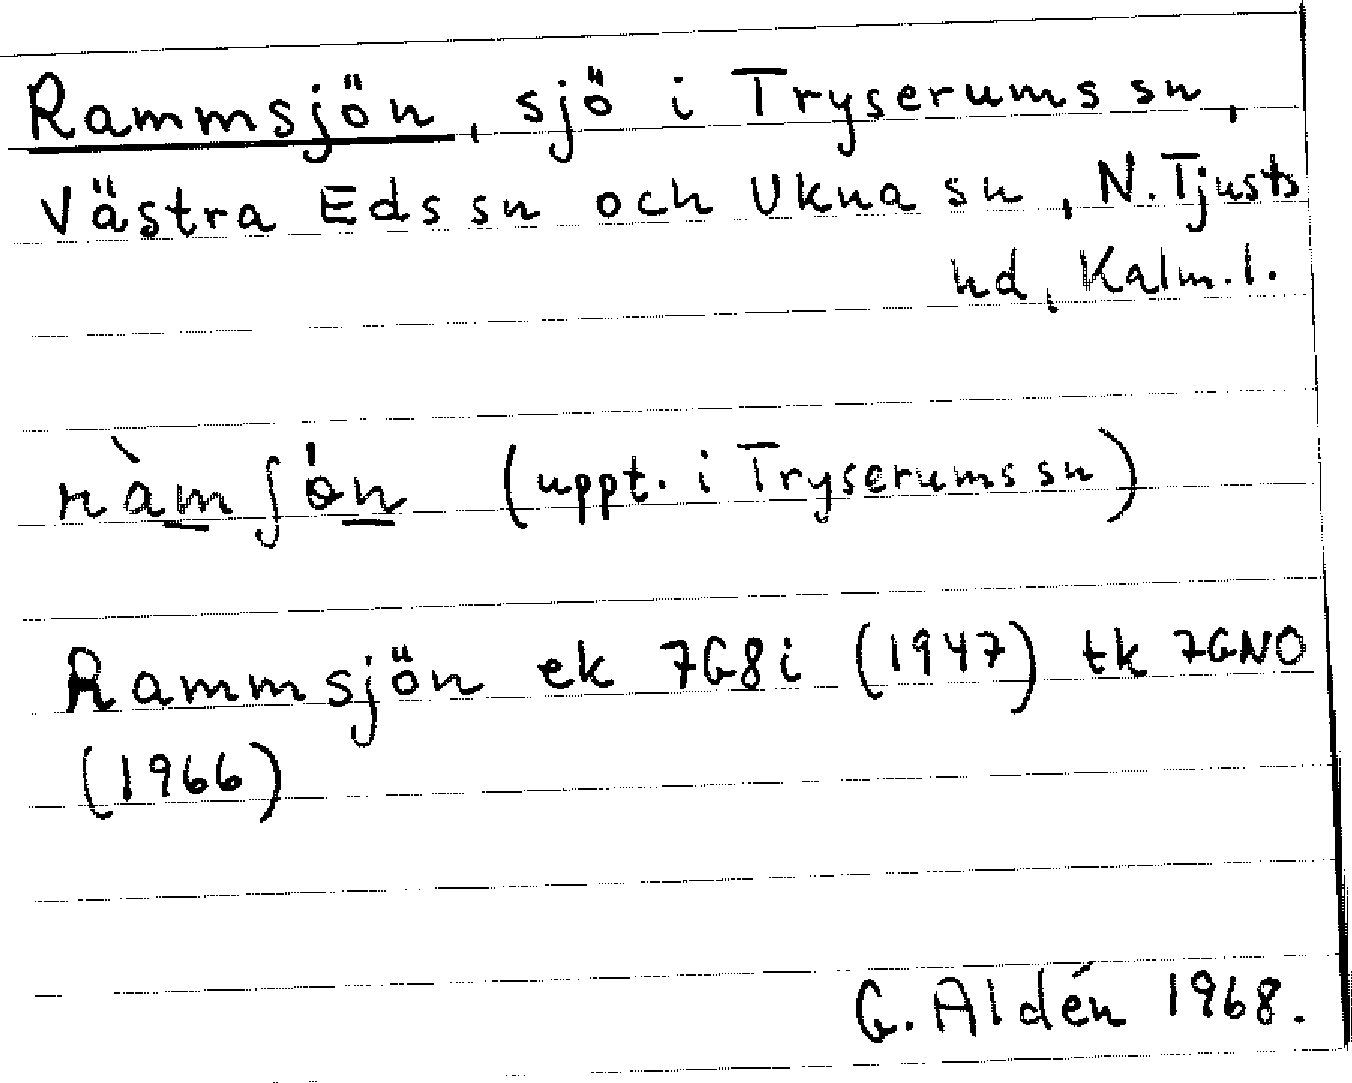 Rammsjön, sjö i Tryserums sn,
Västra Eds sn och Ukna sn, N. Tjusts
hd, Kalm. l.
ràmʃȯn (uppt. i Tryserums sn)
Rammsjön ek 7G8i (1947) tk 7GNO
(1966)
G. Aldén 1968.